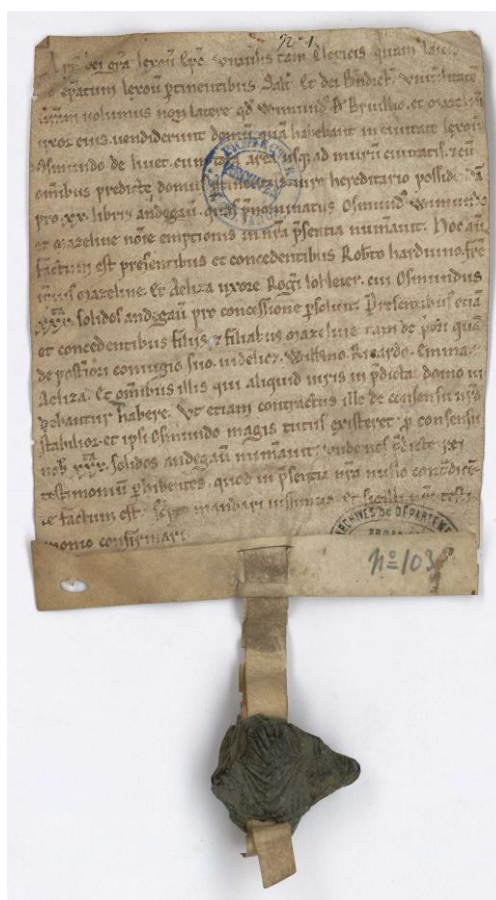 nº 1
dei gra lexou Epc Uniu'sis tam Clericis quam laicis
lexou ptinentibus Salt Et dei Bndict. Uniu'sitate
uram volumus non latere qd Wimund de Bruillio et Mazelina
uxor eius vendiderunt domu qua habebant in civitate lexou
Osmundo de livet cum tota area usq; ad muru civitatis & cu
omibus predicte domui iure hereditario possid
pro .xx. libris andegau. quas pnominatus Osmund Wimundo
et Mazeline noie emptionis in nra psentia numauit. Hoc au
factum est presentibus et concedentibus Robto harduino fre
Mazeline. Et Aeliza uxore Rogi cui Osmundus
solidos andegau pro concessione psoluit. Presentibus etia
et concedentibus filiis & filiabus Mazeline tam de pori qua
de posteriori coniugio suo. videlicet Willmo. Ricardo. Emma.
Aeliza. Et omibus illis qui aliquid iuris in pdicta domo
habere. Ut etiam contractus ille de consensu nro
stabilior et ipsi Osmundo magis tutus existeret p consensu
nob solidos andegau numauit. Unde nos pdicte rei
testimoniu phibentes quod in psentia nra nullo contdicen
te factum est. scripto mandari iussimus. Et sigilli nri testi
monio confirmari.
ARCHIVES DU DÉPARTEME
nº 103